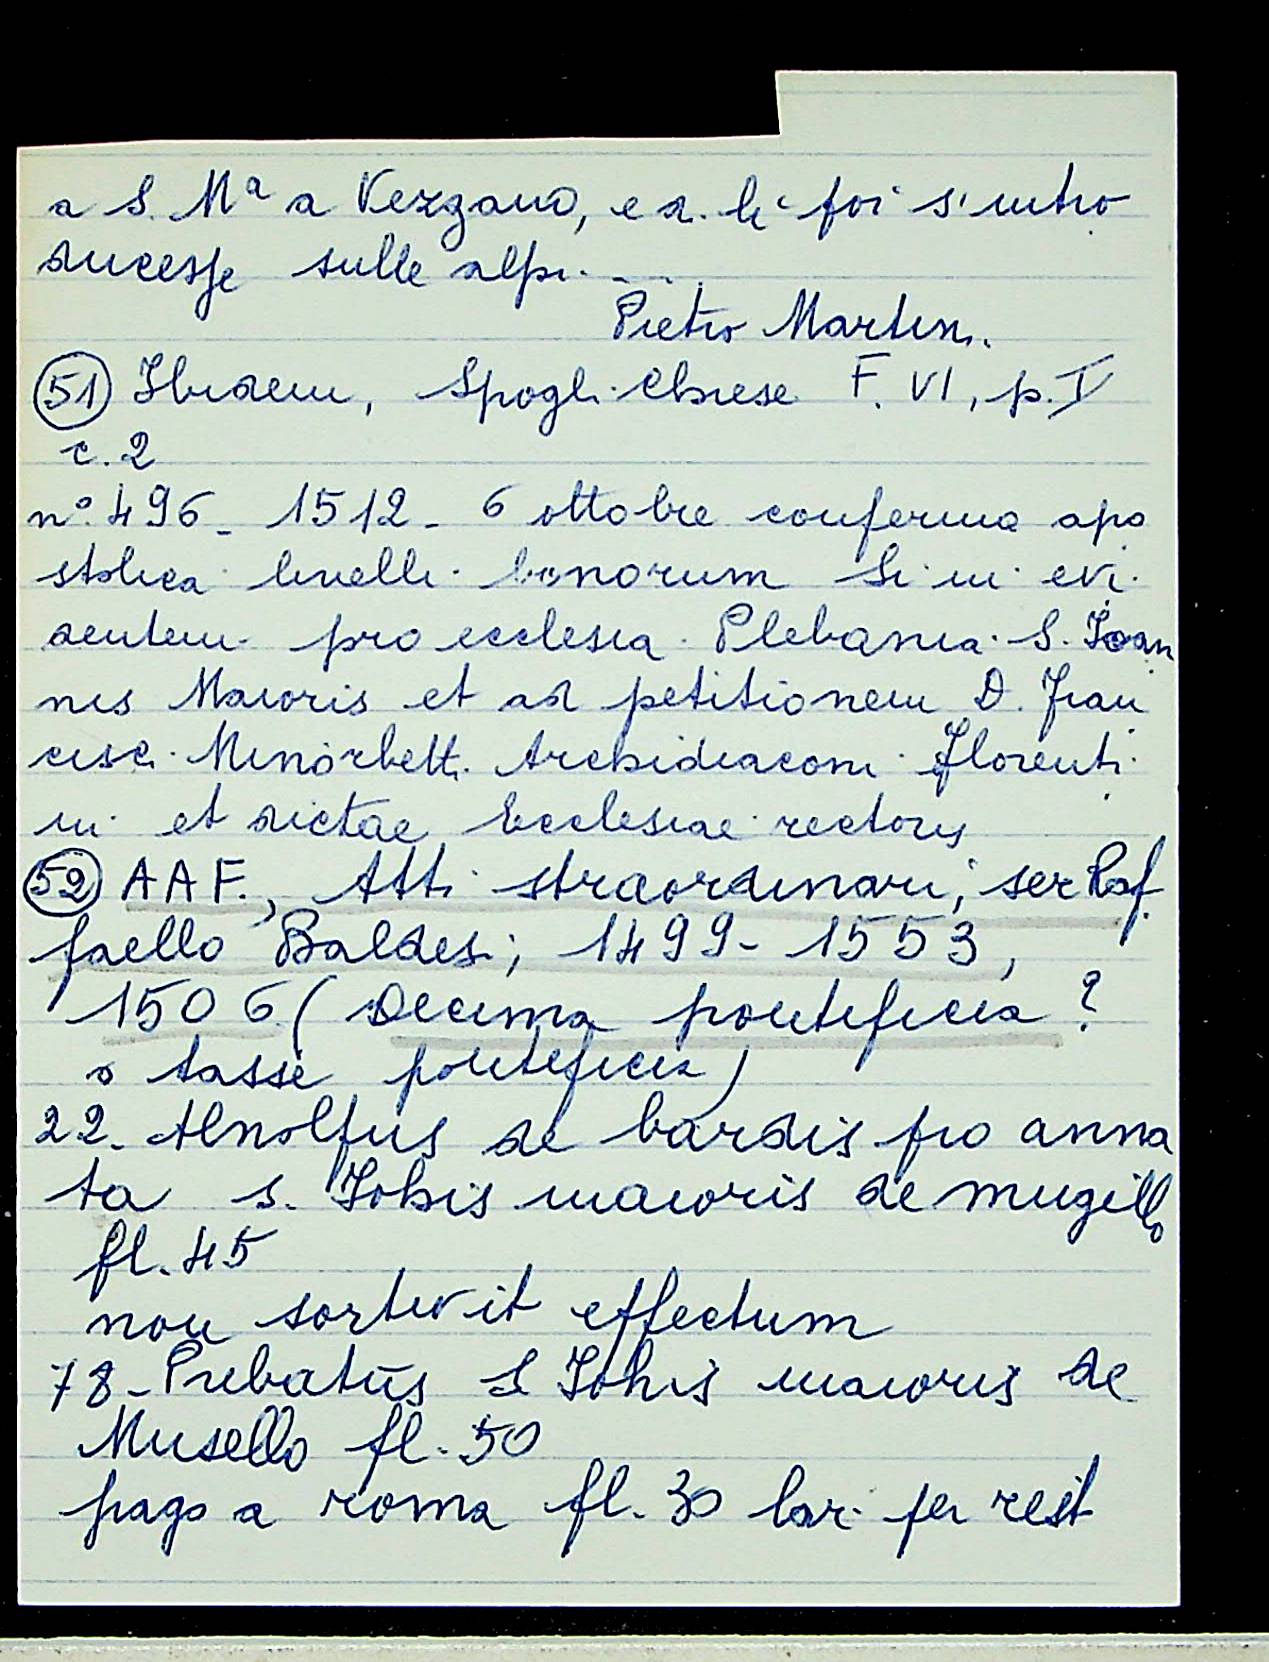 a S. Mª a Vezzano, e a. li poi s'intro
ducesse sulle alpi....
Pietro Martini.
51 Ibidem, Spogli Chiese F. VI, p. I
c. 2
n°. 496 - 1512 - 6 ottobre conferma apo
stolica livelli bonorum in evi
dentem pro ecclesia Plebania S. Joan
nis Maioris et ad petitionem D. Fran
cisci Minorbetti Archidiaconi Florenti
ni et dictae Ecclesiae rectoris
52 A A F., Atti straordinari, ser Raf
faello Baldesi, 1499 - 1553,
1506 (Decima pontificia?
o tasse pontificia)
22. Arnolfus de bardis pro anna
ta s. Johis maioris de mugillo
fl. 45
non sortivit effectum
78 - Prebatūs S Johis maioris de
Musello fl. 50
pago a roma fl. 30 lar. per rest